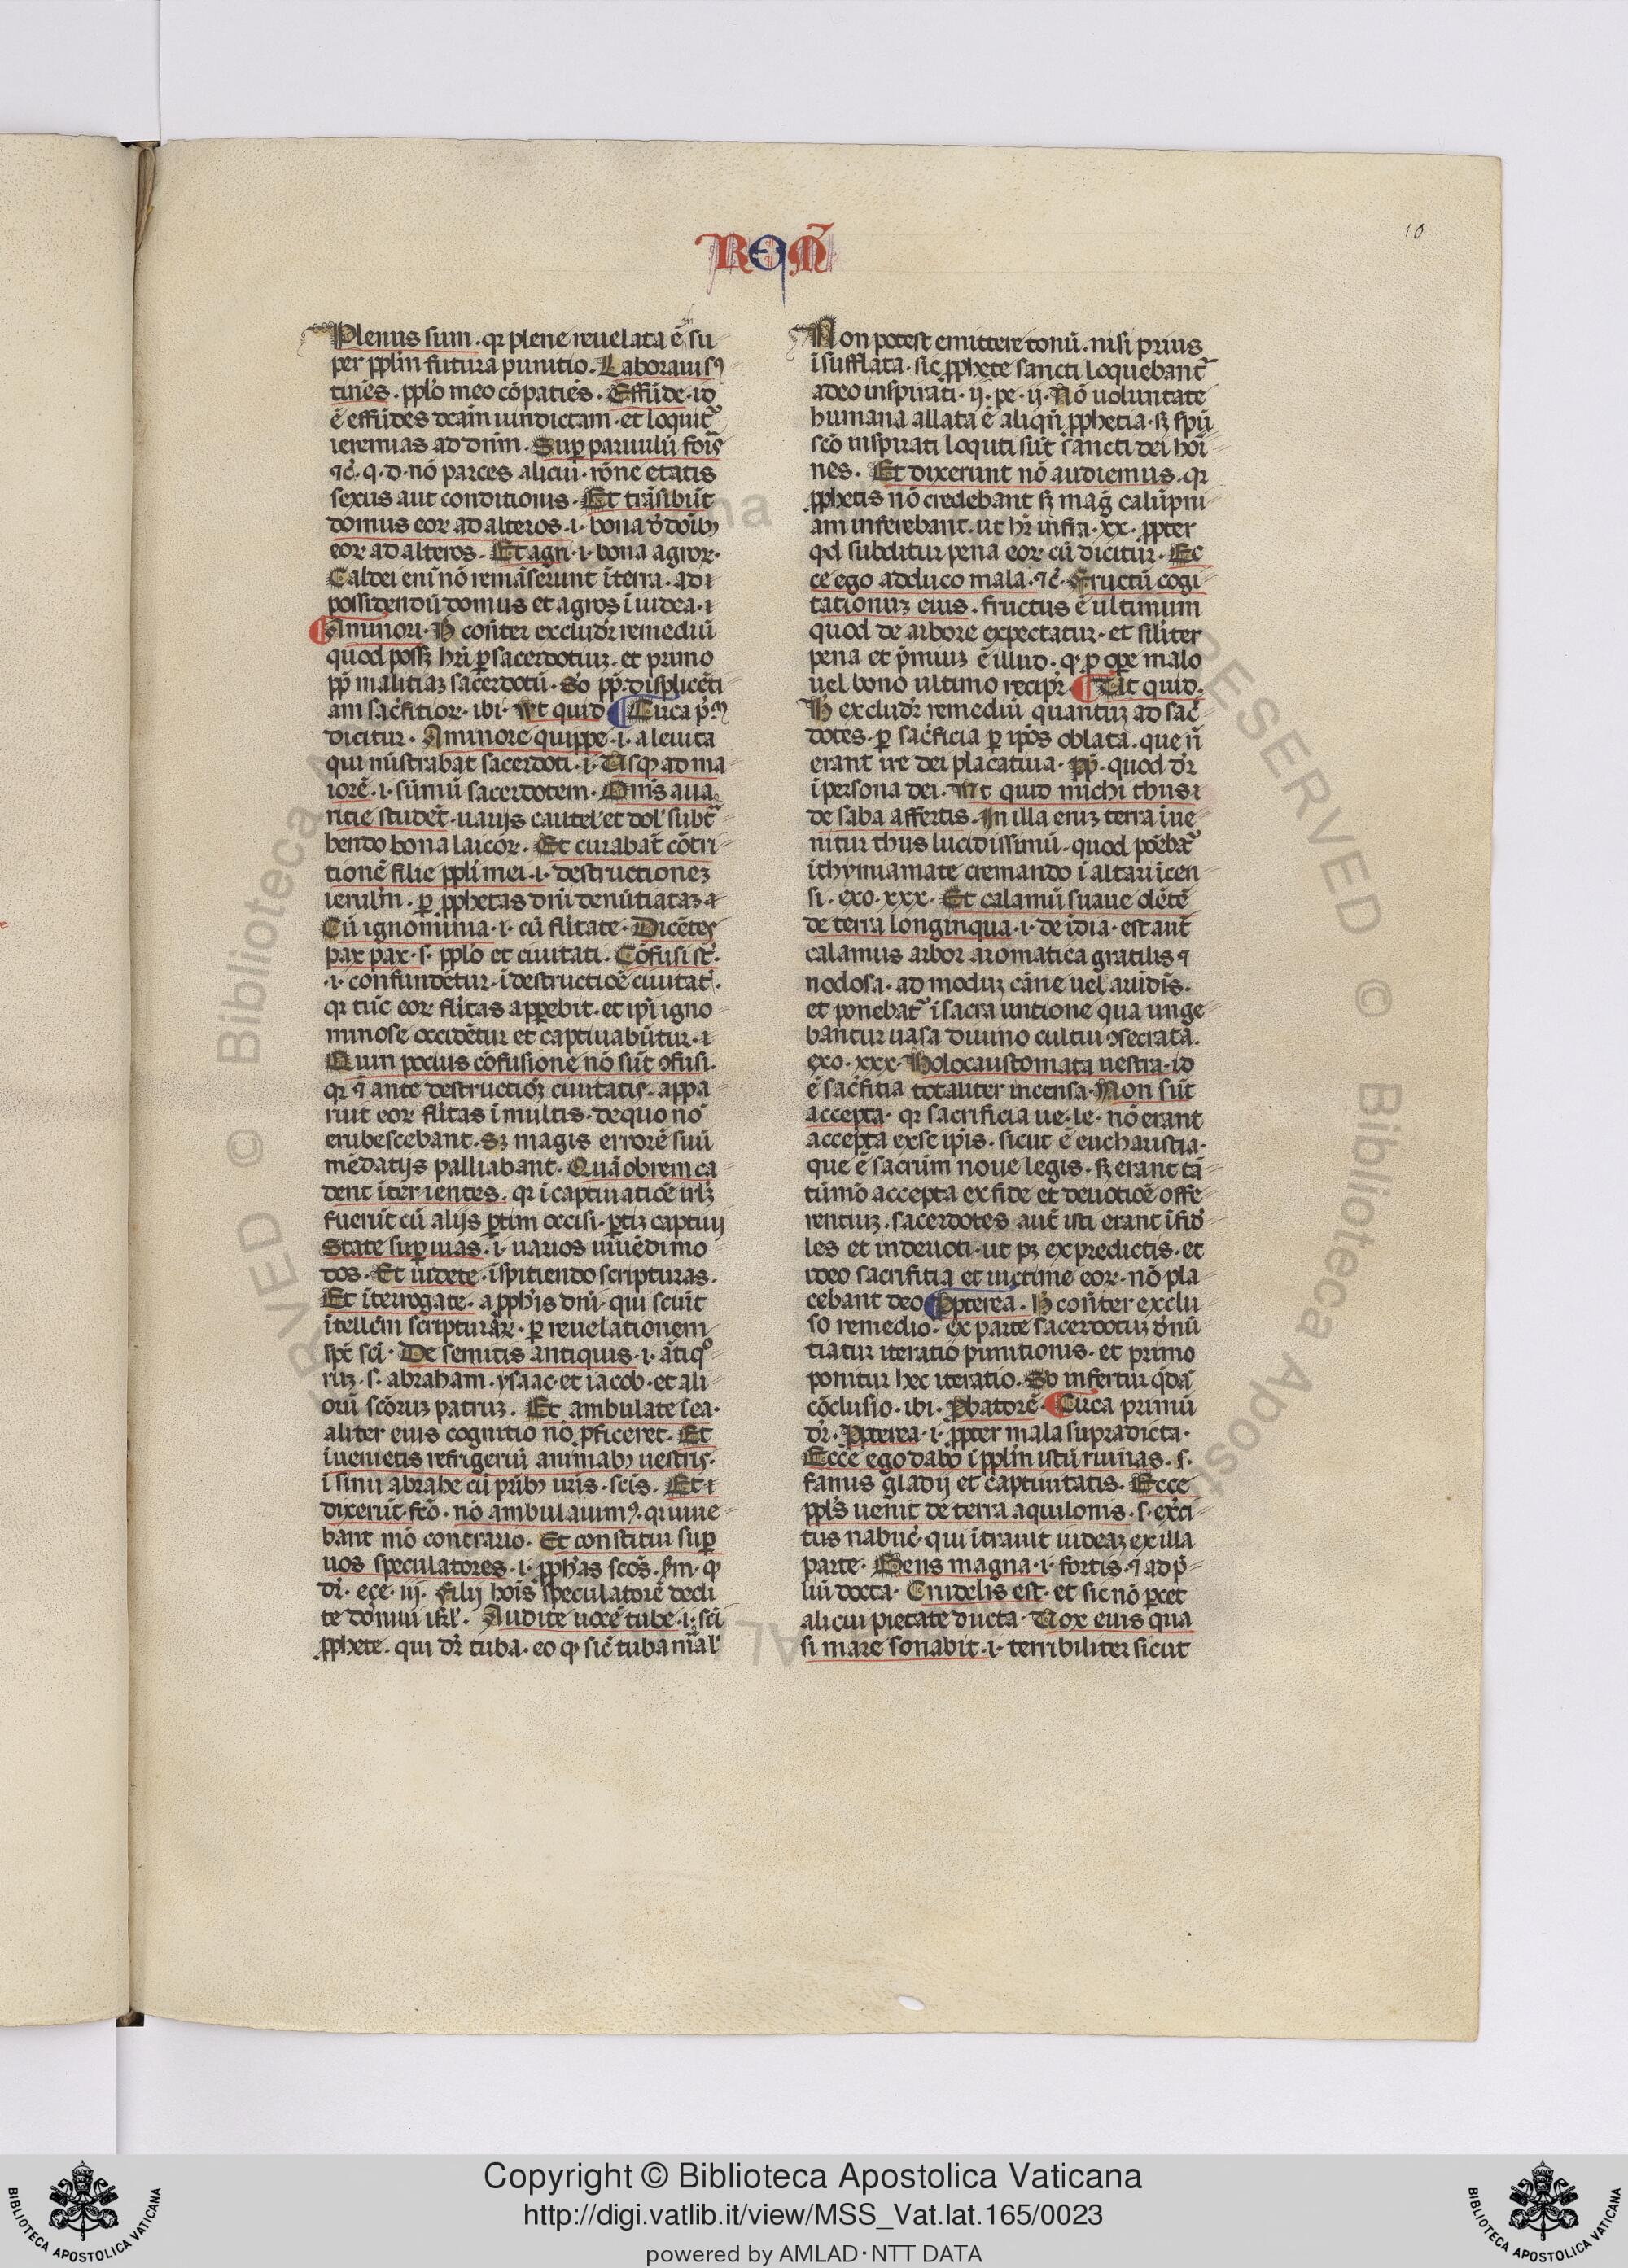 REM̃
10
Plenus sum . qꝛ plene reuelata ē su
per pplm̄ futura punitio . Laborauis
tinēs . pplo meo cōpatiēs . Effūde . id
ē effūdes tuam uindictam . et loquit᷑
ieremias ad dn̄m . Sup paruulū foris
⁊c̄ . q . d . nō parces alicui . rōne etatis
sexus aut conditionis . Et trāsibūt
domus eoꝝ ad alteros . i . bona
eoꝝ ad alteros . Et agri . i . bona agroꝝ .
Caldei eni nō remāserunt ī terra . ad
possidendū domus et agros ī iudea .
A minori . H̄ cōn̄ter excludr̄ remediū
quod possꝫ hr̄i ꝑ sacerdotiuꝫ . et primo
pp̄ malitiaꝫ sacerdotū . So pp̄ displicēti
am sac̄fitioꝝ . ibi . Ut quid Circa pᵐ
dicitur . A minore quippe . i . a leuita
qui mīstrabat sacerdoti . i . Usqꝫ ad ma
iorē . i . sūmū sacerdotem . Om̄s aua
ritie studēt . uarijs cautel̄ et dol̄ subt᷑
hendo bona laicoꝝ . Et curabāt cōtri
tionē filie ppli mei . i . destructioneꝫ
ierulm̄ . ꝑ pphetas dn̄i denūtiataꝫ
Cū ignominia . i . cū fl̄itate . Dicētes
pax pax . s . pplo et ciuitati . Cōfusi st̄ .
. i . confundētur . ī destructiōe ciuitat̄ .
qꝛ tūc eoꝝ fl̄itas apparebit . et ip̄i igno
minose occidētur et captiuabūtur .
Quin pocius cōfusione nō sūt ꝯfusi .
qꝛ ⁊ ante destructiōꝫ ciuitatis . appa
ruit eoꝝ fl̄itas ī multis . de quo nō
erubescebant . Sꝫ magis errorē suū
mēdatijs palliabant . Quā obrem ca
dent iter ientes . qꝛ ī captiuatiōe
fuerūt cū alijs ꝑtim occisi . ꝑtiꝫ captiui
State sup uias . i . uarios uiuēdi mo
dos . Et uidete . īspitiendo scripturas .
Et īterrogate . a pphīs dn̄i . qui sciūt
ītellcm̄ scripturaꝝ . ꝑ reuelationem
sp̄c sc̄i . De semitis antiquis . i . ātiqᵒ
ruꝫ . s . abraham . ysaac . et iacob . et ali
oꝝ sc̄oruꝫ patruꝫ . Et ambulate ī ea .
aliter eius cognitio nō ꝓficeret . Et
īuenietis refrigeriū animabꝫ uestris .
ī sinu abrahe cū pr̄ibꝫ ur̄is . scīs . Et
dixerūt . fc̄o . nō ambulauimꝰ . qꝛ uiue
bant mō contrario . Et constitui sup
uos speculatores . i . pph̄as scōs . sm̄ . qꝫ
dr̄ . eçe . iij . Filij hoīs speculatorē dedi
te domui isrl̄ . Audite uocē tube . i . sc̄i
pphete . qui dr̄ tuba . eo qꝫ sic̄ tuba
Non potest emittere tonū . nisi prius
īsufflata . sic pphete sancti loquebant᷑
a deo inspirati . ij . pe . ij . Nō uoluntate
humana allata ē aliqn̄ pphetia . sꝫ spū
scō inspirati loquti sūt sancti dei hoī
nes . Et dixerunt nō audiemus . qꝛ
pphetis nō credebant sꝫ mag̉ calūpni
am inferebant . ut hr̄ infra . xx . ppter
qd̄ subditur pena eoꝝ cū dicitur . Ec
ce ego adduco mala . ⁊c̄ . Fructū cogi
tationuꝫ eius . fructus ē ultimum
quod de arbore expectatur . et sil̄iter
pena et p̄miuꝫ ē illud . qꝫ p oꝑe malo
uel bono ultimo recipr̄ . Ut quid .
H̄ excludr̄ remediū quantuꝫ ad sac̄
dotes . ꝑ sac̄ficia ꝑ ipōs oblata . que n̄
erant ire dei placatiua . pp̄ . quod dr̄
ī persona dei . Ut quid michi thus
de saba affertis . In illa eniꝫ terra īue
nitur thus lucidissimū . quod ponēbat᷑
ī thymiamate cremando ī altari īcen
si . exo . xxx . Et calamū suaue olētē
de terra longinqua . i . de īdia . est aūt
calamus arbor aromatica gratilis ⁊
nodosa . ad moduꝫ cāne uel arūdīs .
et ponebat᷑ ī sacra untione qua unge
bantur uasa diuino cultui ꝯsecrata .
exo . xxx . Holocaustomata uestra . id
ē sac̄fitia totaliter incensa . Non sūt
accepta . qꝛ sacrificia ue . le . nō erant
accepta ex se ip̄is . sicut ē eucharistia .
que ē sacr̄m noue legis . sꝫ erant tā
tūmō accepta ex fide et deuotiōe offe
rentiuꝫ . sacerdotes aūt isti erant īfid̄
les et indeuoti . ut pꝫ ex predictis . et
ideo sacrifitia et uictime eoꝝ . nō pla
cebant deo Ppterea . H̄ cōn̄ter exclu
so remedio . ex parte sacerdotuꝫ d̄nū
tiatur iteratio punitionis . et primo
ponitur hec iteratio . So infertur qdā
cōclusio . ibi . Pbatorē . Circa primū
dr̄ . Ppterea . i . ppter mala supradicta .
Ecce ego dabo ī pplm̄ istū ruinas . s .
famis gladij et captiuitatis . Ecce
ppls̄ uenit de terra aquilonis . s . exc̄i
tus nabuc̄ . qui ītrauit iudeaꝫ ex illa
parte . Gens magna . i . fortis . ⁊ ad p̄
liū docta . Crudelis est . et sic nō ꝑcet
alicui pietate ducta . Uox eius qua
si mare sonabit . i . terribiliter sicut
Copyright © Biblioteca Apostolica Vaticana
http://digi.vatlib.it/view/MSS_Vat.lat.165/0023
powered by AMLAD·NTT DATA
BIBLIOTECA APOSTOLICA VATICANA
BIBLIOTECA APOSTOLICA VATICANA